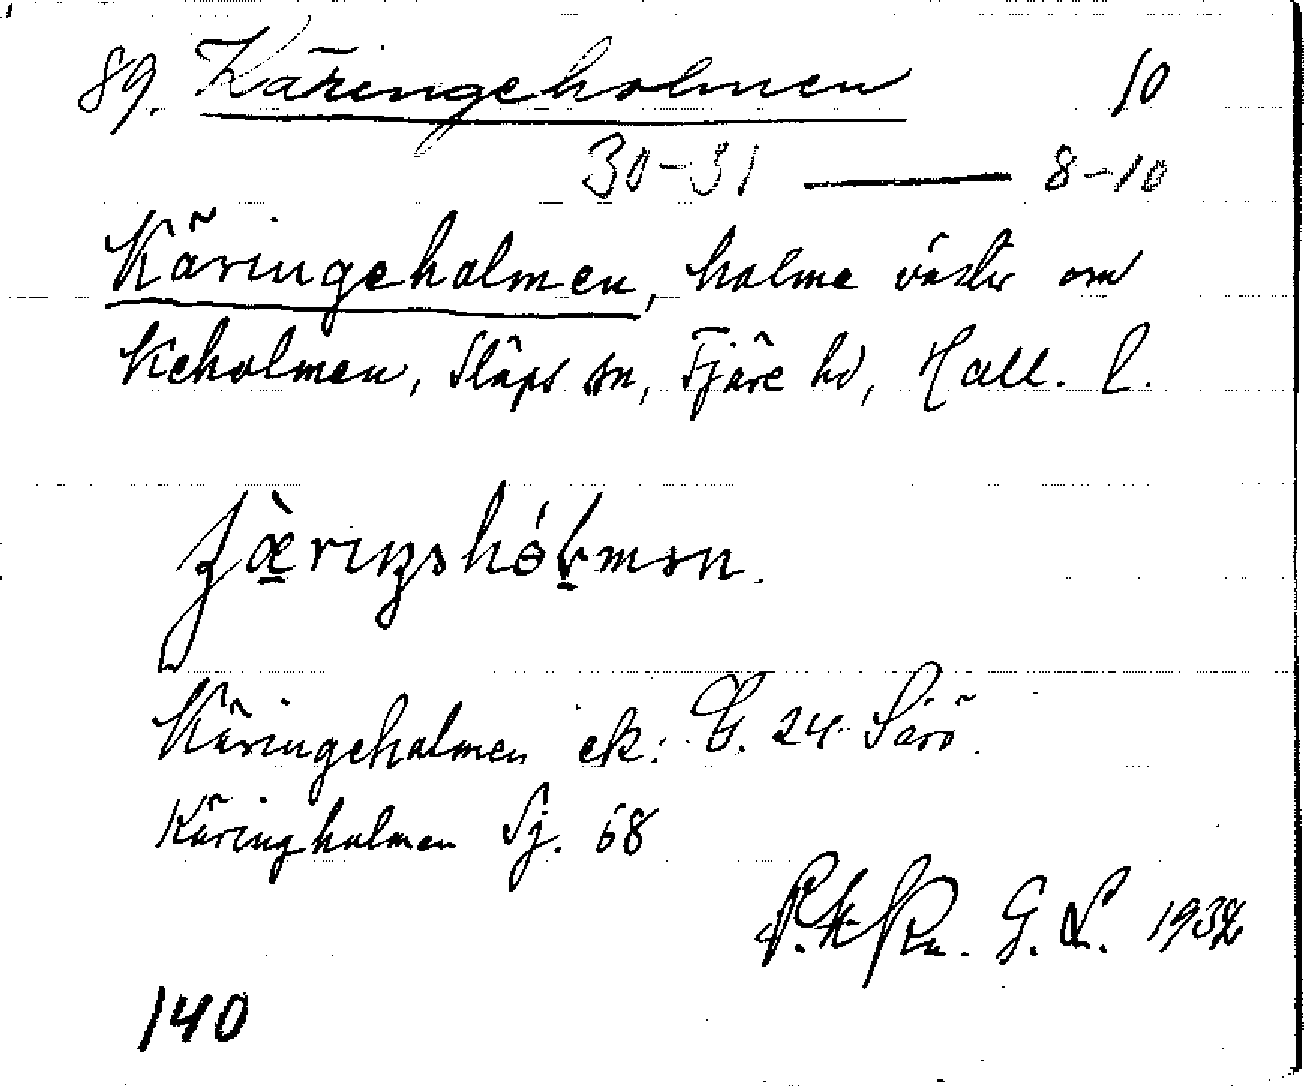 89. Käringeholmen 10
30-31 — 8-10
Käringeholmen, holme väster om
Keholmen, Släps sn, Fjäre hd, Hall. l.
Käringeholmen ek: G. 24 Särö.
Käringholmen Sj. 68
G. L. 1932
140